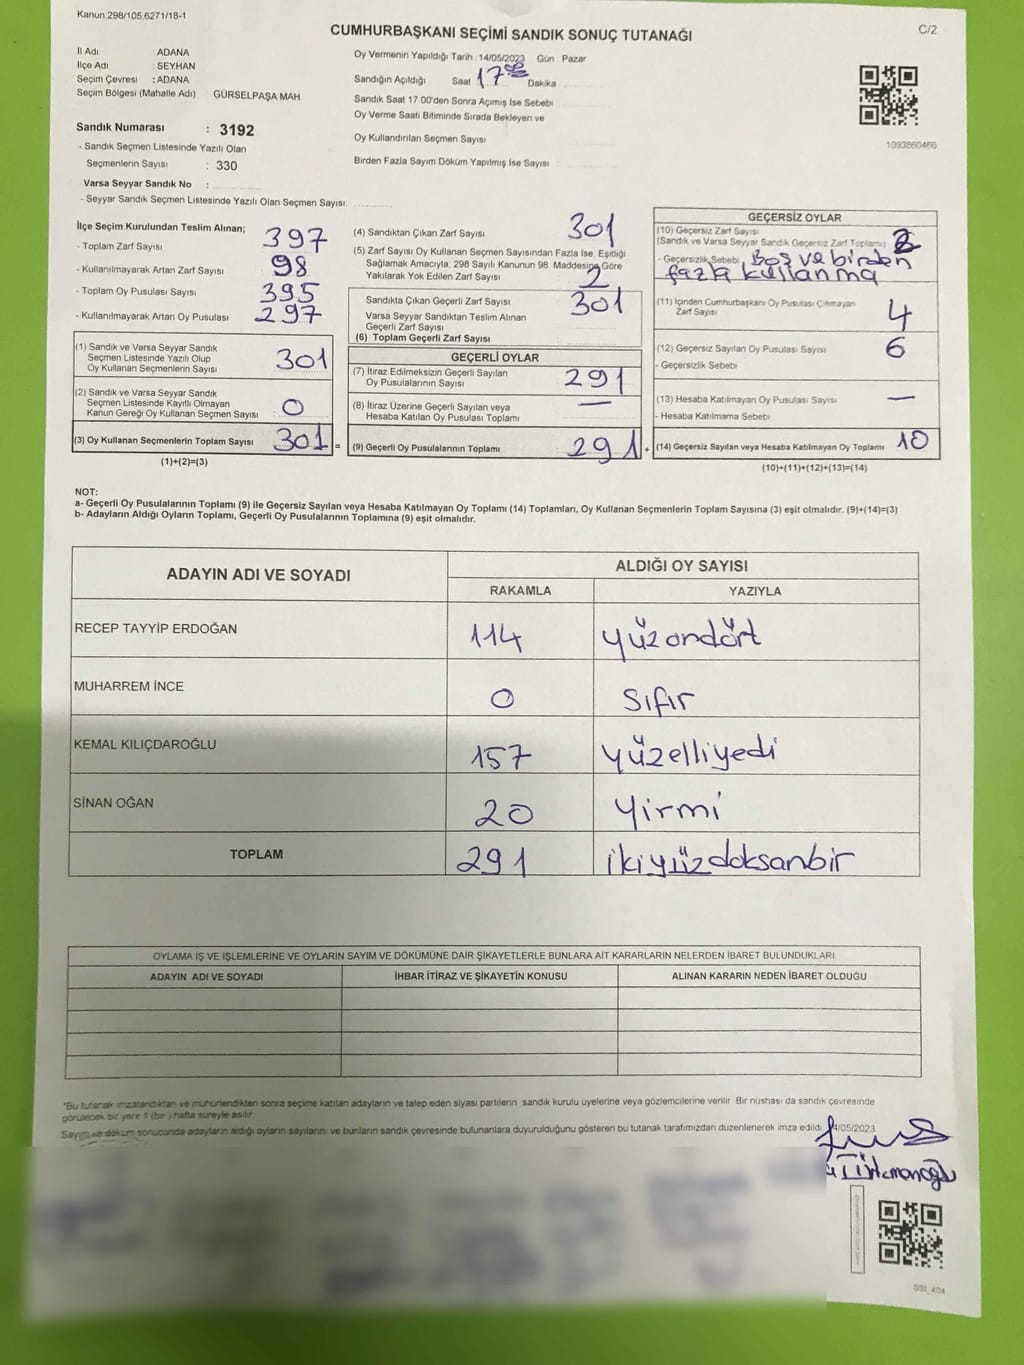 Kanun:298/105,6271/18-1
CUMHURBAŞKANI SEÇİMİ SANDIK SONUÇ TUTANAĞI
C/2
İl Adı ADANA
İlçe Adı SEYHAN
Seçim Çevresi : ADANA
Seçim Bölgesi (Mahalle Adı) GÜRSELPAŞA MAH.
Oy Vermenin Yapıldığı Tarih : 14/05/2023 Gün : Pazar
Sandığın Açıldığı Saat 17 Dakika
Sandık Saat 17.00'den Sonra Açımış İse Sebebi
Oy Verme Saati Bitiminde Sırada Bekleyen ve
Oy Kullandırılan Seçmen Sayısı
Birden Fazla Sayım Döküm Yapılmış İse Sayısı
1093860466
Sandık Numarası : 3192
- Sandık Seçmen Listesinde Yazılı Olan
Seçmenlerin Sayısı : 330
Varsa Seyyar Sandık No :
- Seyyar Sandık Seçmen Listesinde Yazılı Olan Seçmen Sayısı:
İlçe Seçim Kurulundan Teslim Alınan;
- Toplam Zarf Sayısı 397
- Kullanılmayarak Artan Zarf Sayısı 98
- Toplam Oy Pusulası Sayısı 395
- Kullanılmayarak Artan Oy Pusulası 297
(1) Sandık ve Varsa Seyyar Sandık
Seçmen Listesinde Yazılı Olup
Oy Kullanan Seçmenlerin Sayısı 301
(2) Sandık ve Varsa Seyyar Sandık
Seçmen Listesinde Kayıtlı Olmayan
Kanun Gereği Oy Kullanan Seçmen Sayısı 0
(3) Oy Kullanan Seçmenlerin Toplam Sayısı 301 =
(1)+(2)=(3)
(4) Sandıktan Çıkan Zarf Sayısı 301
(5) Zarf Sayısı Oy Kullanan Seçmen Sayısından Fazla İse, Eşitliği
Sağlamak Amacıyla, 298 Sayılı Kanunun 98. Maddesine Göre
Yakılarak Yok Edilen Zarf Sayısı 2
Sandıkta Çıkan Geçerli Zarf Sayısı 301
Varsa Seyyar Sandıktan Teslim Alınan
Geçerli Zarf Sayısı
(6) Toplam Geçerli Zarf Sayısı
GEÇERLİ OYLAR
(7) İtiraz Edilmeksizin Geçerli Sayılan
Oy Pusulalarının Sayısı 291
(8) İtiraz Üzerine Geçerli Sayılan veya
Hesaba Katılan Oy Pusulası Toplamı —
(9) Geçerli Oy Pusulalarının Toplamı 291 +
GEÇERSİZ OYLAR
(10) Geçersiz Zarf Sayısı
(Sandık ve Varsa Seyyar Sandık Geçersiz Zarf Toplamı)
- Geçersizlik Sebebi Boş ve birden
fazla kullanma
(11) İçinden Cumhurbaşkanı Oy Pusulası Çıkmayan
Zarf Sayısı 4
(12) Geçersiz Sayılan Oy Pusulası Sayısı 6
- Geçersizlik Sebebi
(13) Hesaba Katılmayan Oy Pusulası Sayısı —
- Hesaba Katılmama Sebebi
(14) Geçersiz Sayılan veya Hesaba Katılmayan Oy Toplamı 10
(10)+(11)+(12)+(13)=(14)
NOT:
a- Geçerli Oy Pusulalarının Toplamı (9) ile Geçersiz Sayılan veya Hesaba Katılmayan Oy Toplamı (14) Toplamları, Oy Kullanan Seçmenlerin Toplam Sayısına (3) eşit olmalıdır. (9)+(14)=(3)
b- Adayların Aldığı Oyların Toplamı, Geçerli Oy Pusulalarının Toplamına (9) eşit olmalıdır.
ADAYIN ADI VE SOYADI
ALDIĞI OY SAYISI
RAKAMLA YAZIYLA
RECEP TAYYİP ERDOĞAN 114 yüzondört
MUHARREM İNCE 0 sıfır
KEMAL KILIÇDAROĞLU 157 yüzelliyedi
SİNAN OĞAN 20 yirmi
TOPLAM 291 ikiyüzdoksanbir
OYLAMA İŞ VE İŞLEMLERİNE VE OYLARIN SAYIM VE DÖKÜMÜNE DAİR ŞİKAYETLERLE BUNLARA AİT KARARLARIN NELERDEN İBARET BULUNDUKLARI
ADAYIN ADI VE SOYADI İHBAR İTİRAZ VE ŞİKAYETİN KONUSU ALINAN KARARIN NEDEN İBARET OLDUĞU
*Bu tutanak imzalandıktan ve mühürlendikten sonra seçime katılan adayların ve talep eden siyasi partilerin sandık kurulu üyelerine veya gözlemcilerine verilir. Bir nüshası da sandık çevresinde
görülecek bir yere 1 (bir ) hafta süreyle asılır.
Sayım ve döküm sonucunda adayların aldığı oyların sayılarını ve bunların sandık çevresinde bulunanlara duyurulduğunu gösteren bu tutanak tarafımızdan düzenlenerek imza edildi. 14/05/2023